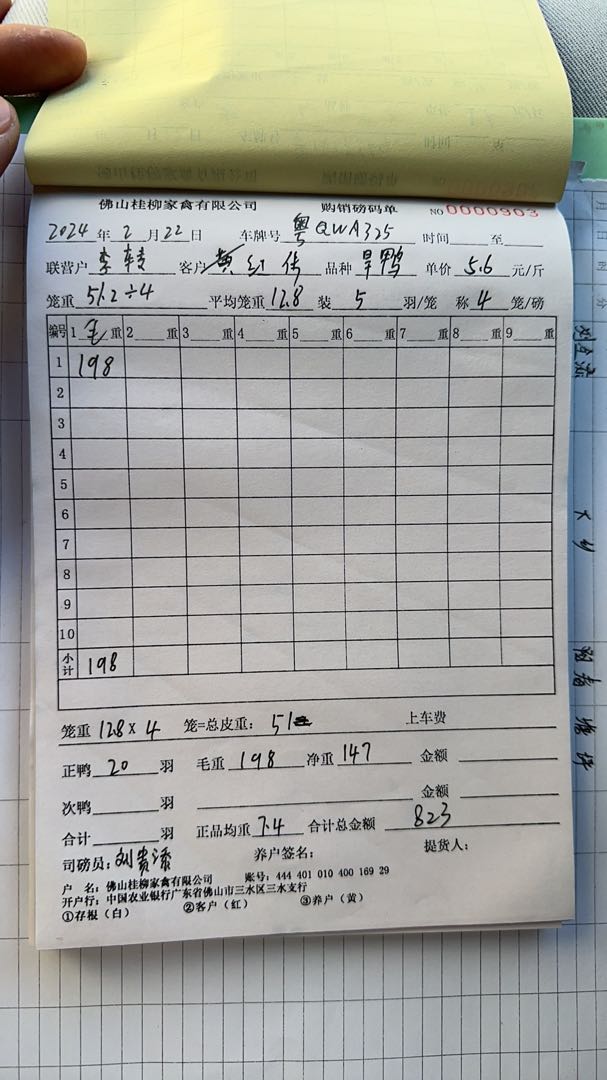 佛山桂柳家禽有限公司 购销磅码单 NO 0000903
2024年2月22日 车牌号 粤QWA325 时间 至
联营户 李 客户 黄红 品种 旱鸭 单价 5.6 元/斤
笼重 51.2÷4 平均笼重 12.8 装 5 羽/笼 称 4 笼/磅
编号 1 毛 重 2 重 3 重 4 重 5 重 6 重 7 重 8 重 9 重
1 198
2
3
4
5
6
7
8
9
10
小计 198
笼重 12.8×4 笼=总皮重: 51 上车费
正鸭 20 羽 毛重 198 净重 147 金额
次鸭 羽 金额
合计 羽 正品均重 7.4 合计总金额 823
司磅员: 刘贵添 养户签名: 提货人:
户 名: 佛山桂柳家禽有限公司 账号: 444 401 010 400 169 29
开户行: 中国农业银行广东省佛山市三水区三水支行
①存根(白) ②客户(红) ③养户(黄)